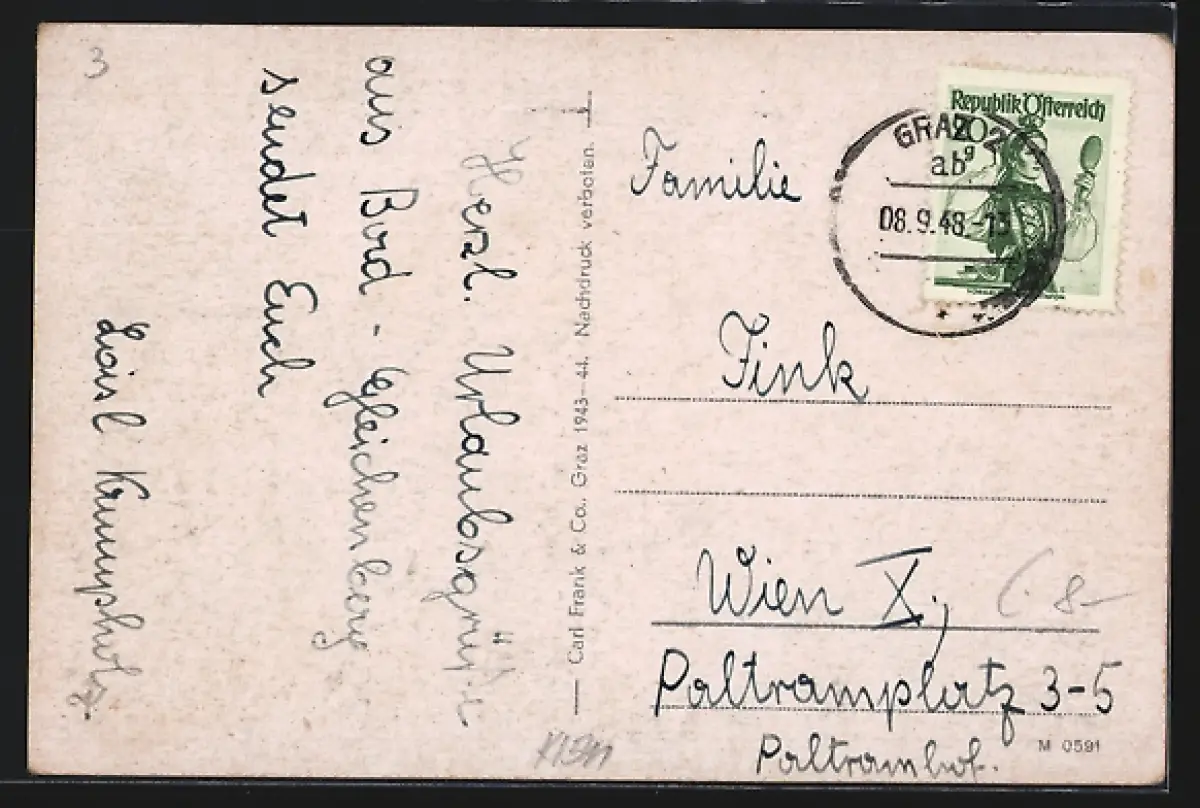 3
Herzl. Urlaubsgrüße
aus Bad - Gleichenberg
sendet Euch
Loisl Krumpholz.
Carl Frank & Co., Graz 1943-44. Nachdruck verboten.
Republik Österreich
GRAZ 2
ab
08.9.48.-13
Familie
Fink
Wien X.,
Paltramplatz 3-5
Paltramhof.
M 0591